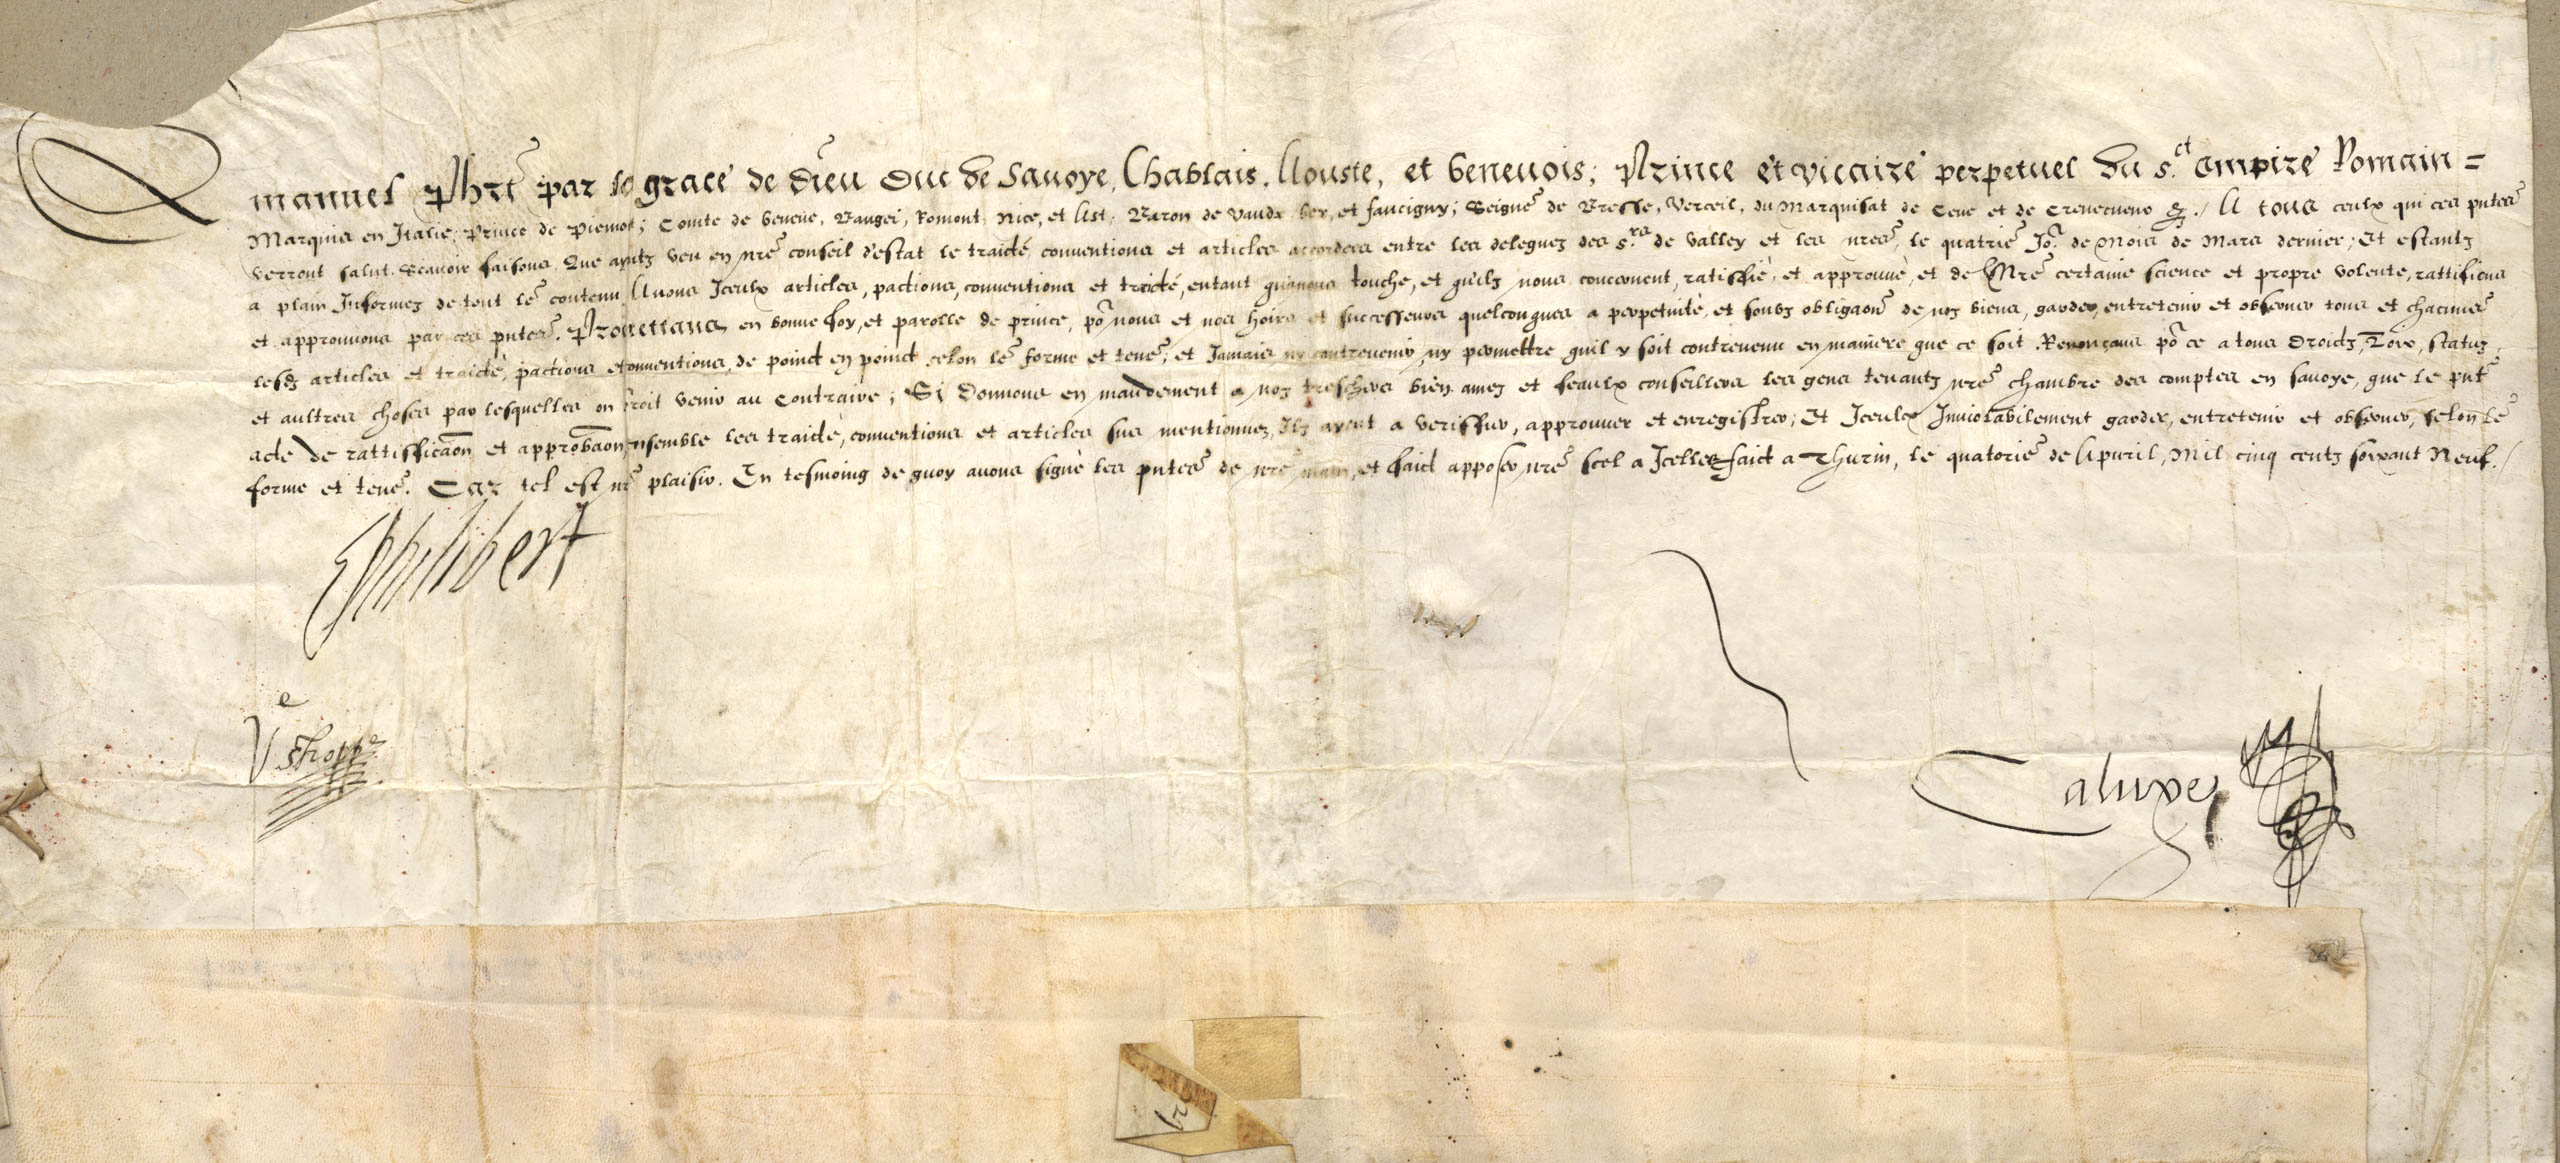 Emanuel Phrt par la grace de dieu Duc de Savoye, Chablais, Aouste, et Genevois; Prince et vicaire perpetuel du s.ct empire Romain=
Marquis en Italie; Prince de Piemot; Comte de Geneve, Baugei, Romont, Nice, et Ast; Baron de Vaudx, Gex, et faucigny; Seignr de Bresse, Verceil, du Marquisat de Ceve et de Crevecueur &./ A tous ceulx qui ces putes
verront salut. Scavoir faisons, Que ayntz veu en nre conseil d'estat le traicté, conventions et articles accordees entre les deleguez des s.rs de Valley et les nres, le quatrie Jor. de Mois de Mars dernier; Et estants
a plain Informez de tout le contenu Avons Iceulx articles, pactions, conventions et traicté, entant qu'a nous touche, et qu'ilz nous concernent, ratiffié, et approuvé, et de Nre certaine science et propre volente, rattifions
et approuvons par ces putes. Promettans en bonne foy, et parolle de prince, por nous et nos hoirs et successeurs quelconques a perpetuité, et soubz obligaon de noz biens, garder, entretenir et observer tous et chacuns
lesdz articles et traicté, pactions et conventions, de poinct en poinct selon le forme et tener, et Jamais ny contrevenir, ny permettre quil y soit contrevenu en maniere que ce soit. Renonçans por ce a tous Droictz, Loix, statuz,
et aultres choses par lesquelles on iroit venir au Contraire; Si Donnons en mandement a noz treschers bien amez et feaulx conseillers les gens tenants nre chambre des comptes en savoye, que le put
acte de rattifficaon et approbaon, ensemble les traicté, conventions et articles sus mentionnez, Ilz ayent a veriffier, approuver et enregistrer; Et Iceulx Inviolabilement garder, entretenir et observer, selon le
forme et tener. Car tel est nre plaisir. En tesmoing de quoy avons signé les putes de nre main, et faict apposer nre scel a Icelles faict a Thurin, le quatorie de Apvril, Mil cinq centz soixant Neuf./
EPhilibert
Ve
Caluxe